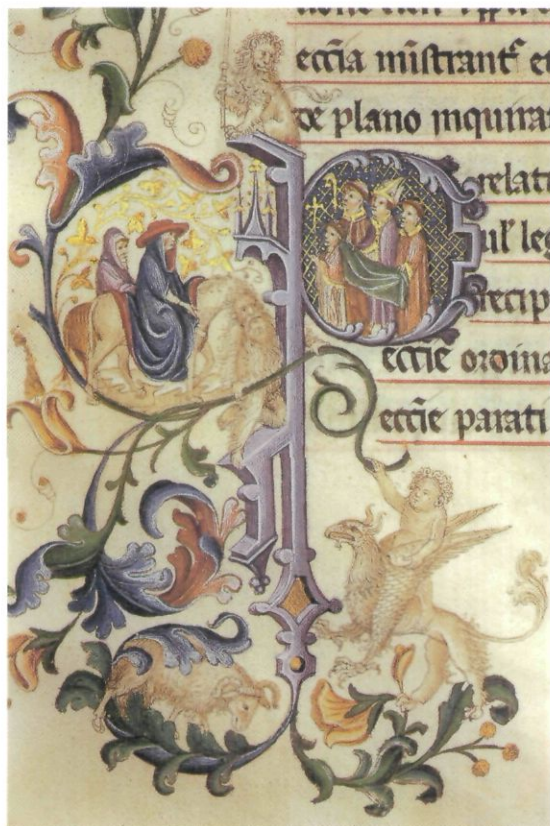 eccīa mīstrant᷒ et
de plano inquira
relati
ul' leg
recip
eccīe ordina
eccīe parati